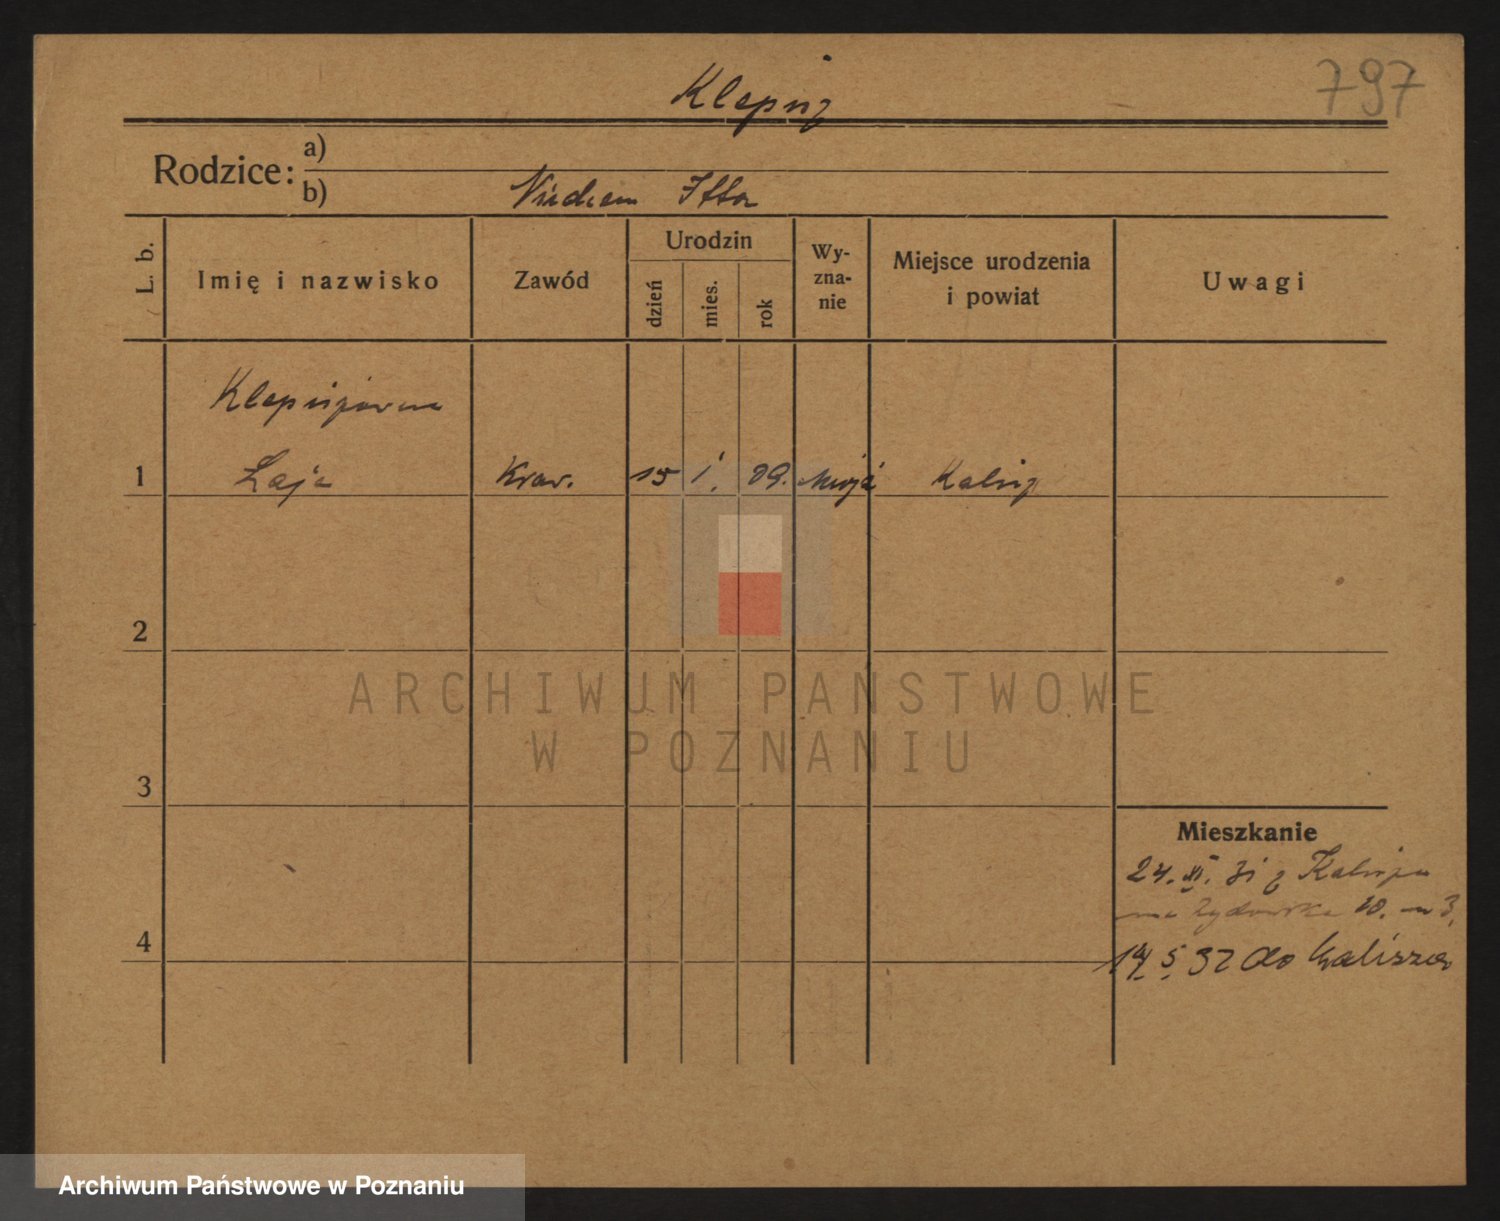 797
Klepisz
Rodzice:
a)
b) Itta
L. b.
Imię i nazwisko
Zawód
Urodzin
dzień
mies.
rok
Wy-
zna-
nie
Miejsce urodzenia
i powiat
Uwagi
1
Łaja
Kraw. 15 I. 09. mojż Kalisz
2
ARCHIWUM PAŃSTWOWE
W POZNANIU
3
Mieszkanie
24. XI. 31 z Kalisza
Żydowska 10. m 3.
4
14 5 32 do Kalisza
Archiwum Państwowe w Poznaniu